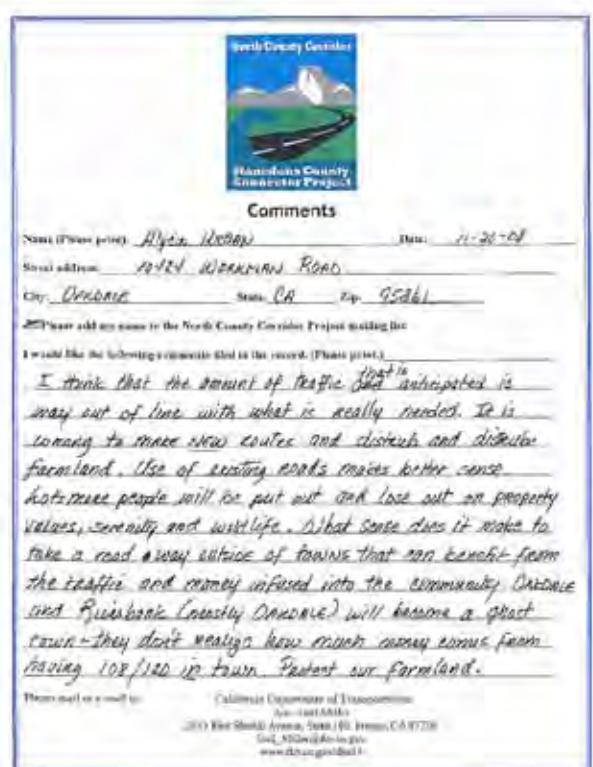 North County Corridor
Stanislaus County
Connector Project
Comments
Name (Please print) Date: 11-20-08
Street address: WORKMAN ROAD
City: OAKDALE State: CA Zip: 95361
Please add my name to the North County Corridor Project mailing list
I would like the following comments filed in the record. (Please print.)
I think that the amount of traffic that is anticipated is
way out of line with what is really needed. It is
to make NEW routes and disturb and
farmland. Use of existing roads makes better sense.
Lots more people will be put out and lose out on property
values, serenity and wildlife. What sense does it make to
take a road away outside of towns that can benefit from
the traffic and money infused into the community OAKDALE
and Riverbank (mostly OAKDALE) will become a ghost
town - they don't how much money comes from
having 108/120 in town. Protect our farmland.
Please mail or e-mail to: California Department of Transportation